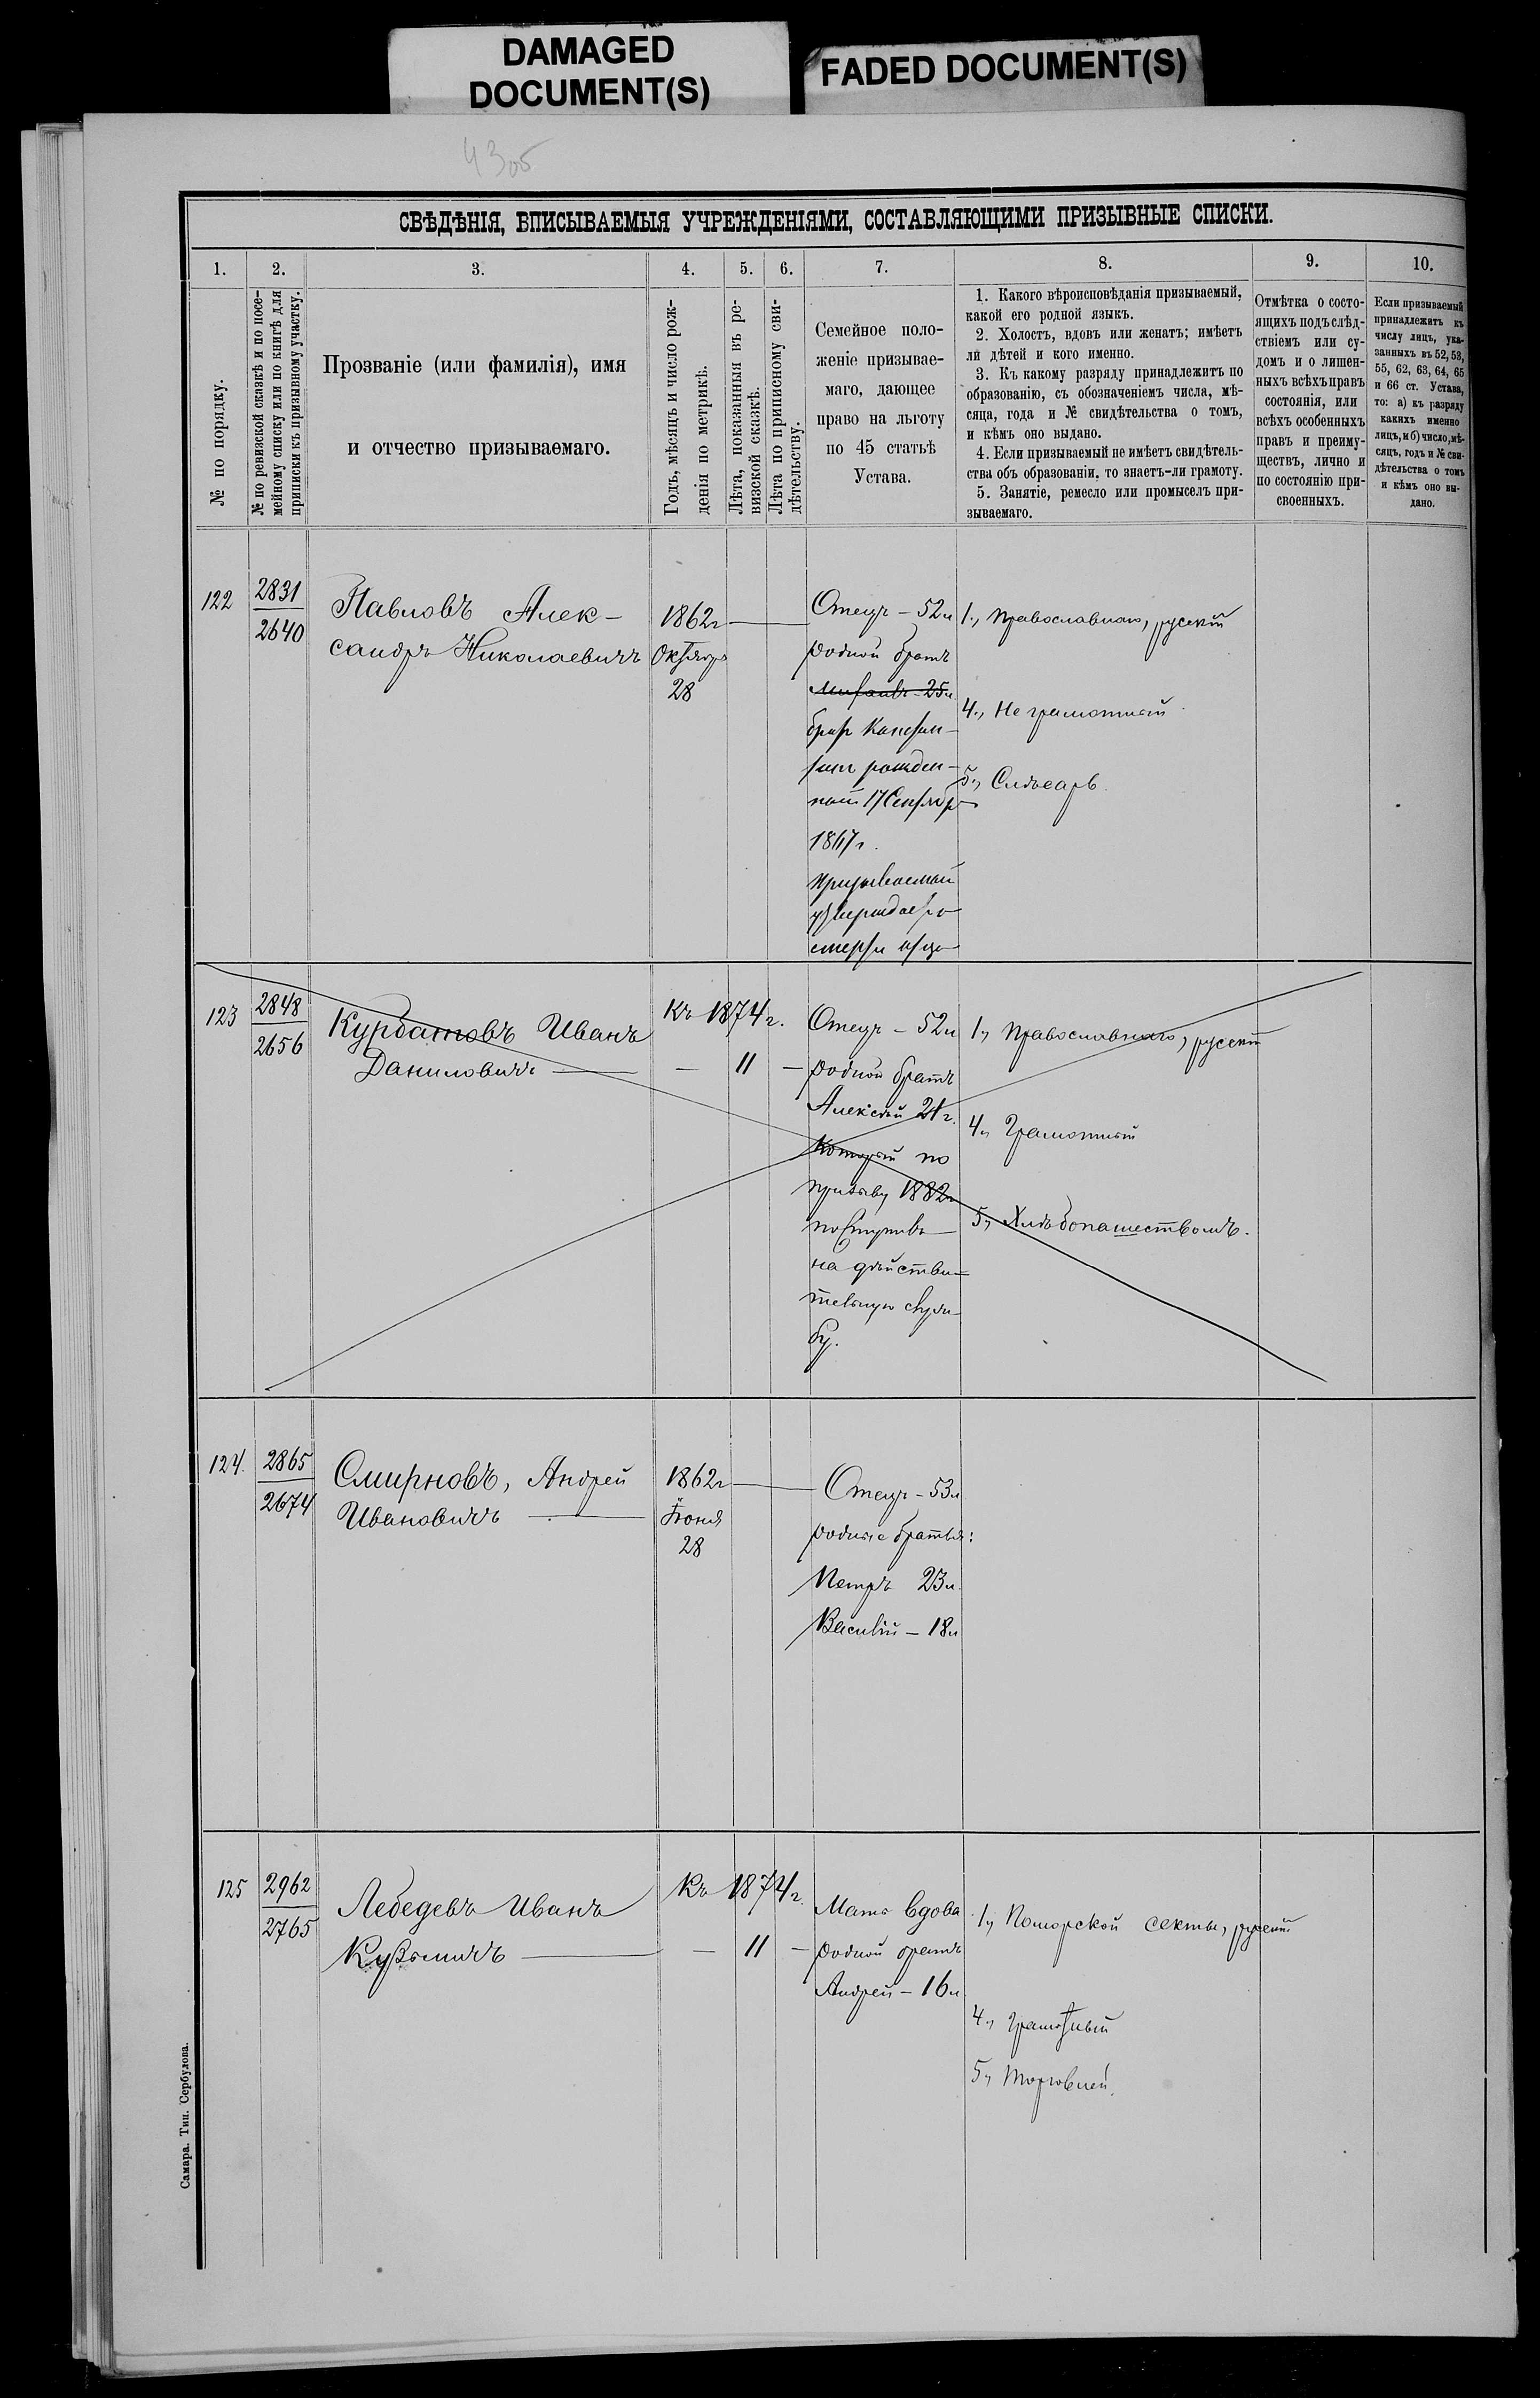 DAMAGED
DOCUMENT(S)
FADED DOCUMENT(S)
43об
СВѢДѢНІЯ, ВПИСЫВАЕМЫЯ УЧРЕЖДЕНІЯМИ, СОСТАВЛЯЮЩИМИ ПРИЗЫВНЫЕ СПИСКИ.
1.
2.
3.
4.
5.
6.
7.
8.
9.
10.
№ по порядку.
№ по ревизской сказкѣ и по посе-
мейному списку или по книгѣ для
приписки къ призывному участку.
Прозваніе (или фамилія), имя
и отчество призываемаго.
Годъ, мѣсяцъ и число рож-
денія по метрикѣ.
Лѣта, показанныя въ ре-
визской сказкѣ.
Лѣта по приписному сви-
дѣтельству.
Семейное поло-
женіе призывае-
маго, дающее
право на льготу
по 45 статьѣ
Устава.
1. Какого вѣроисповѣданія призываемый,
какой его родной языкъ.
2. Холостъ, вдовъ или женатъ; имѣетъ
ли дѣтей и кого именно.
3. Къ какому разряду принадлежитъ по
образованію, съ обозначеніемъ числа, мѣ-
сяца, года и № свидѣтельства о томъ,
и кѣмъ оно выдано.
4. Если призываемый не имѣетъ свидѣтель-
ства объ образованіи, то знаетъ-ли грамоту.
5. Занятіе, ремесло или промыселъ при-
зываемаго.
Отмѣтка о состо-
ящихъ подъ слѣд-
ствіемъ или су-
домъ и о лишен-
ныхъ всѣхъ правъ
состоянія, или
всѣхъ особенныхъ
правъ и преиму-
ществъ, лично и
по состоянію при-
своенныхъ.
Если призываемый
принадлежитъ къ
числу лицъ, ука-
занныхъ въ 52, 53,
55, 62, 63, 64, 65
и 66 ст. Устава,
то: а) къ разряду
какихъ именно
лицъ, и б) число, мѣ-
сяцъ, годъ и № сви-
дѣтельства о томъ
и кѣмъ оно вы-
дано.
122
2831
2640
Павловъ Алек-
сандръ Николаевичъ
1862г
Октября
28
Отецъ – 52л
родной братъ
братъ Констан-
тинъ рожден-
ный 17 Сентябр
1867г.
призываемый
утверждаетъ
смерть отца
1., Православнаго, русскій
4., Не грамотный
5., Слѣсарь.
123
2848
2656
Курбатовъ Иванъ
Даниловичъ
Къ 1874г.
– 11 –
Отецъ – 52л
родной братъ
Алексѣй 21г.
Который по
призыву 1882г
поступивъ
на дѣйстви-
тельную служ-
бу.
1., Православнаго, русскій
4., Грамотный
5., Хлѣбопашествомъ.
124.
2865
2674
Смирновъ, Андрей
Ивановичъ
1862г
Іюня
28
Отецъ – 53л
родные братья:
Петръ 23л.
Василій – 18л
125
2962
2765
Лебедевъ Иванъ
Кузьмичъ
Къ 1874г.
– 11 –
Мать вдова
родной братъ
Андрей – 16л
1., Поморской секты, русскій
4., Грамотный
5., Торговлей.
Самара. Тип. Сербулова.